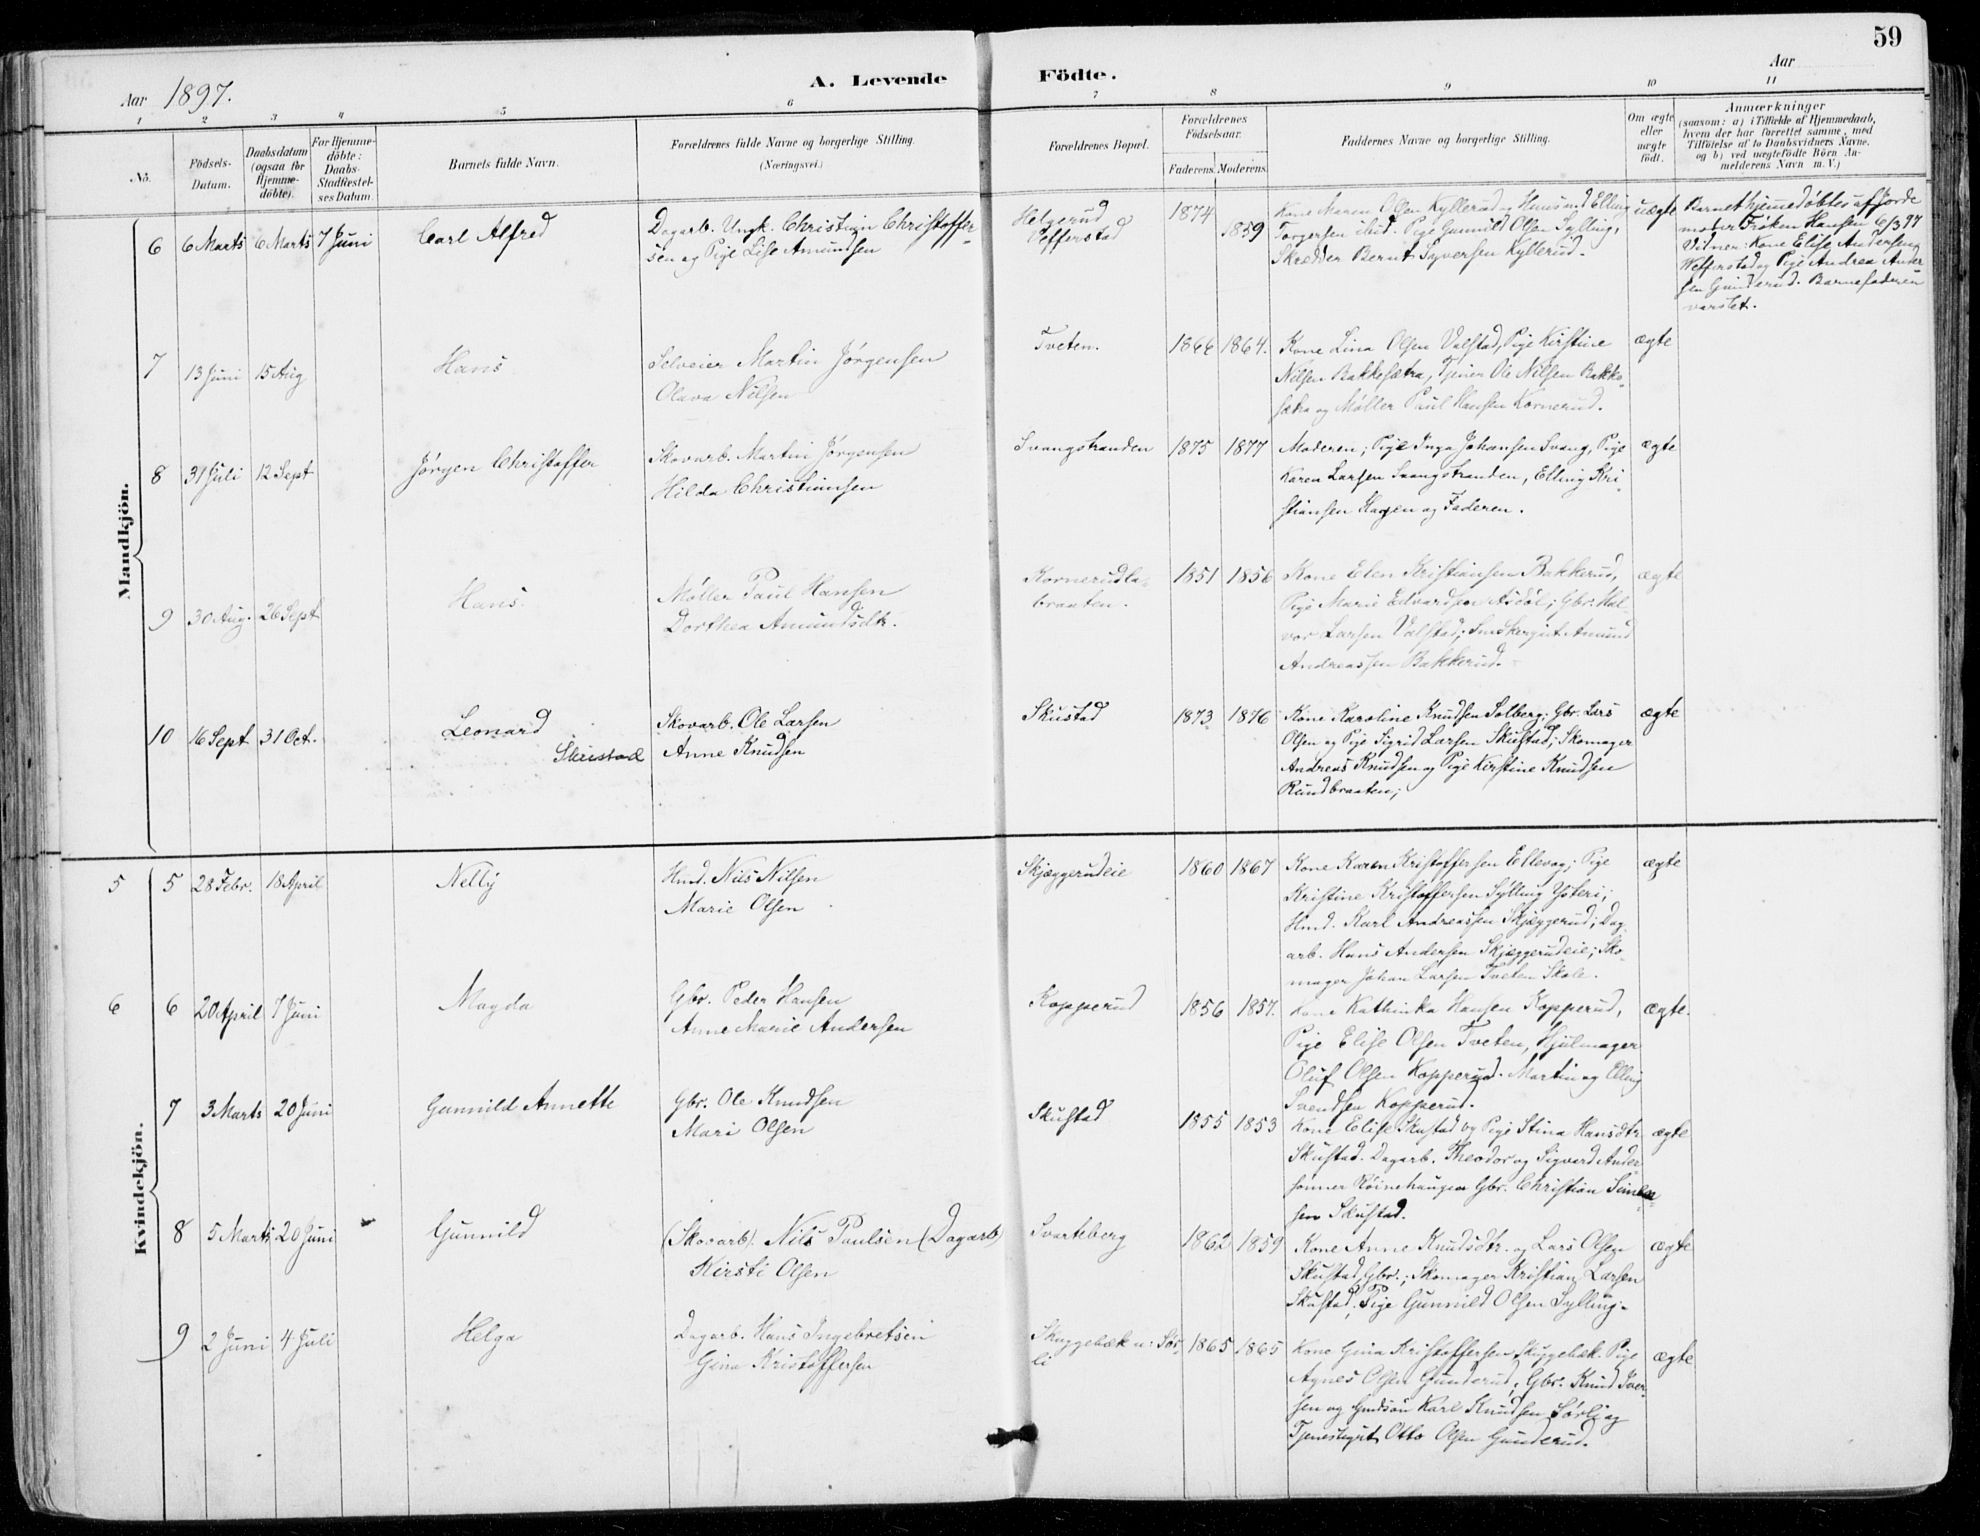 59
Aar 1897.
A. Levende Födte.
Aar
1 2 3 4 5 6 7 8 9 10 11
No.
Födsels-Datum.
Daabsdatum (ogsaa for Hjemme-döbte).
For Hjemme-döbte: Daabs-Stadfæstel-ses Datum.
Barnets fulde Navn.
Forældrenes fulde Navne og borgerlige Stilling.
(Næringsvei.)
Forældrenes Bopæl.
Forældrenes Födselsaar.
Faderens. Moderens.
Faddernes Navne og borgerlige Stilling.
Om ægte eller uægte födt.
Anmærkninger
(saasom: a) i Tilfælde af Hjemmedaab,
hvem der har forrettet samme, med
Tilföielse af to Daabsvidners Navne,
og b) ved uægtefödte Börn An-
melderens Navn m. V.)
Mandkjön.
6 6 Marts 6 Marts 7 Juni Carl Alfred
Dagarb. Ungk. Christian Christoffer-
sen og Pige Lise Amundsen
Helgerud
Vefferstad
1874 1859
Kone Maren Olsen Kyllerud og Husmd Elling
Torgersen ibid. Pige Gunnild Olsen Sylling,
Skrædder Bernt Syversen Kyllerud.
uægte
Barnet hjemmedöbtes af Jorde
moder Fröken Hansen 6/3 97
Vidner: Kone Elise Andersen
Wefferstad og Pige Andrea Ander
sen Gunderud. Barnefaderen
varslet.
7 13 Juni 15 Aug Hans
Selveier Martin Jörgensen
Olava Nilsen
Tveten.
1866 1864.
Kone Lina Olsen Valstad, Pige Kirstine
Nilsen Bakkesætra, Tjener Ole Nilsen Bakke-
sætra og Møller Paul Hansen Kornerud.
ægte
8 31 Juli 12 Sept Jörgen Christoffer
Skovarb. Martin Jörgensen
Hilda Christiansen
Svangstranden
1875 1877
Moderen; Pige Inga Johansen Svang, Pige
Karen Larsen Svangstranden, Elling Kri-
stiansen Hagen og Faderen.
ægte
9 30 Aug. 26 Sept Hans.
Møller Paul Hansen
Dorthea Amundsdtr.
Kornerudla-
braaten.
1851 1856
Kone Elen Kristiansen Bakkerud,
Pige Marie Edvardsen Asdöl; Gbr. Hal-
vor Larsen Valstad; Amund
Andreassen Bakkerud.
ægte
10 16 Sept 31 Oct. Leonard
Skuistad
Skovarb. Ole Larsen
Anne Knudsen
Skustad
1873 1876
Kone Karoline Knudsen Solberg; Gbr. Lars
Olsen og Pige Sigrid Larsen Skustad; Skomager
Andreas Knudsen og Pige Kirstine Knudsen
Rundbraaten;
ægte
Kvindekjön.
5 5 28 Febr. 18 April Nelly
Hmd. Nils Nilsen
Marie Olsen
Skjæggerudeie
1860 1867
Kone Karen Kristoffersen Ellevog; Pige
Kristine Kristoffersen Sylling Ysteri;
Hmd. Karl Andreassen Skjæggerud; Dag-
arb. Hans Andersen Skjæggerudeie; Sko-
mager Johan Larsen Tveten Skole.
ægte
6 6 20 April 7 Juni Magda
Gbr. Peder Hansen
Anne Marie Andersen
Kopperud
1856 1857.
Kone Kathinka Hansen Kopperud,
Pige Elise Olsen Tveten, Hjulmager
Oluf Olsen Kopperud. Martin og Elling
Svendsen Kopperud.
ægte.
7 3 Marts 20 Juni Gunnild Annette
Gbr. Ole Knudsen
Mari Olsen
Skustad
1855 1853
Kone Elise Skustad og Pige Stina Hansdtr.
Skustad. Dagarb. Theodor og Sigvard Ander-
sönner Röinehaugen Gbr. Christian Simen-
sen Skustad.
ægte
8 5 Marts 20 Juni Gunnild
(Skovarb). Nils Paulsen (Dagarb)
Kirsti Olsen
Svarteberg
1862 1859
Kone Anne Knudsdtr. og Lars Olsen
Skustad, Gbr.; Skomager Kristian Larsen
Skustad, Pige Gunnild Olsen Sylling.
ægte
9 2 Juni 4 Juli Helga
Dagarb. Hans Ingebretsen
Gina Kristoffersen
Skuggebæk u: Sör-
li
1865 1865
Kone Gina Kristoffersen Skuggebæk. Pige
Agnes Olsen Gunderud; Gbr. Knud Iver-
sen og Gmdsön Karl Knudsen Sörli og
Tjenestegut Otto Olsen Gunderud.
ægte